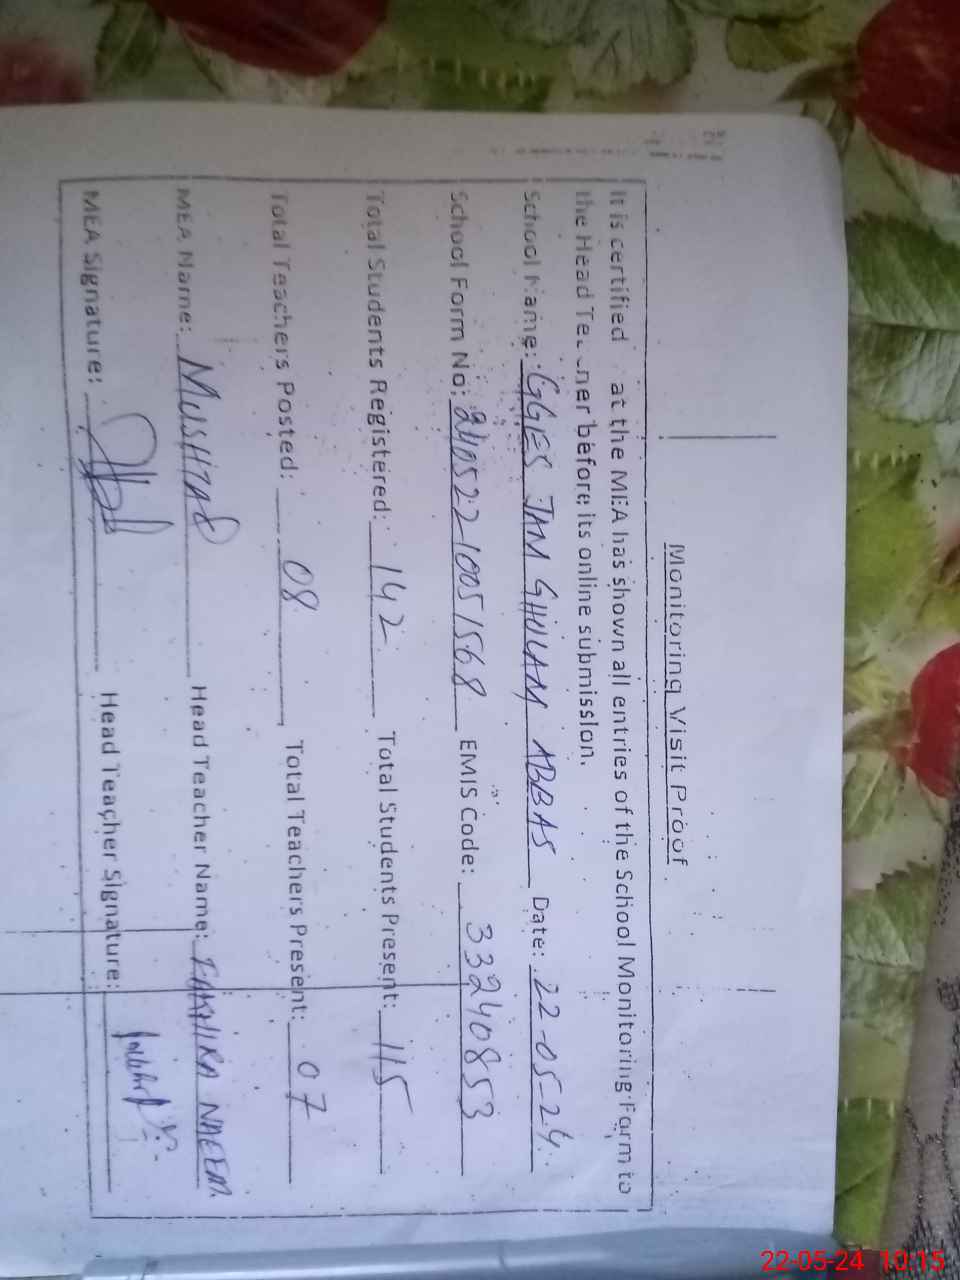 Monitoring Visit Proof
It is certified at the MEA has shown all entries of the School Monitoring Form to
the Head before its online submission.
School Name: GGES JAM GHULAM ABBAS Date: 22-05-24
School Form No: 24052210051568 EMIS Code: 33240853
Total Students Registered: 142 Total Students Present: 115
Total Teachers Posted: 08 Total Teachers Present: 07
MEA Name: MUSHTAQ Head Teacher Name: NAEEM
MEA Signature: Head Teacher Signature:
22-05-24 10:15